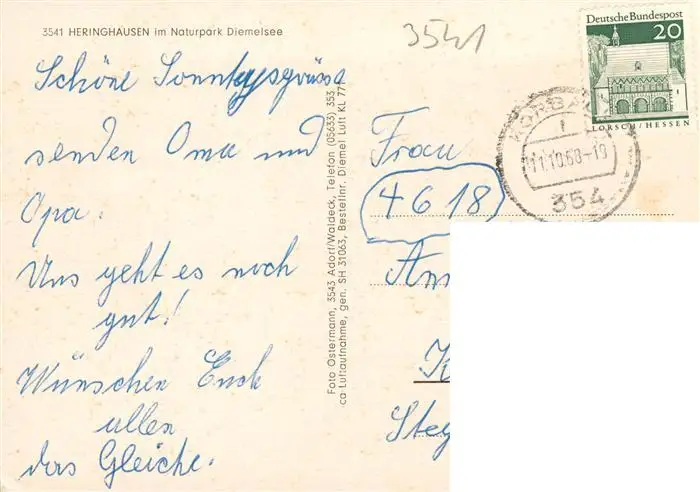 3541 HERINGHAUSEN im Naturpark Diemelsee
3541
Deutsche Bundespost
20
LORSCH/HESSEN
KORBACH
1
11.10.68-19
354
Schöne Sonntagsgrüsse
senden Oma und
Opa.
Uns geht es noch
gut!
Wünschen Euch
allen
das Gleiche.
Foto Ostermann, 3543 Adorf/Waldeck, Telefon (05633) 353
ca-Luftaufnahme, gen. SH 31063, Bestellnr. Diemel Luft KL 771
Frau
4618